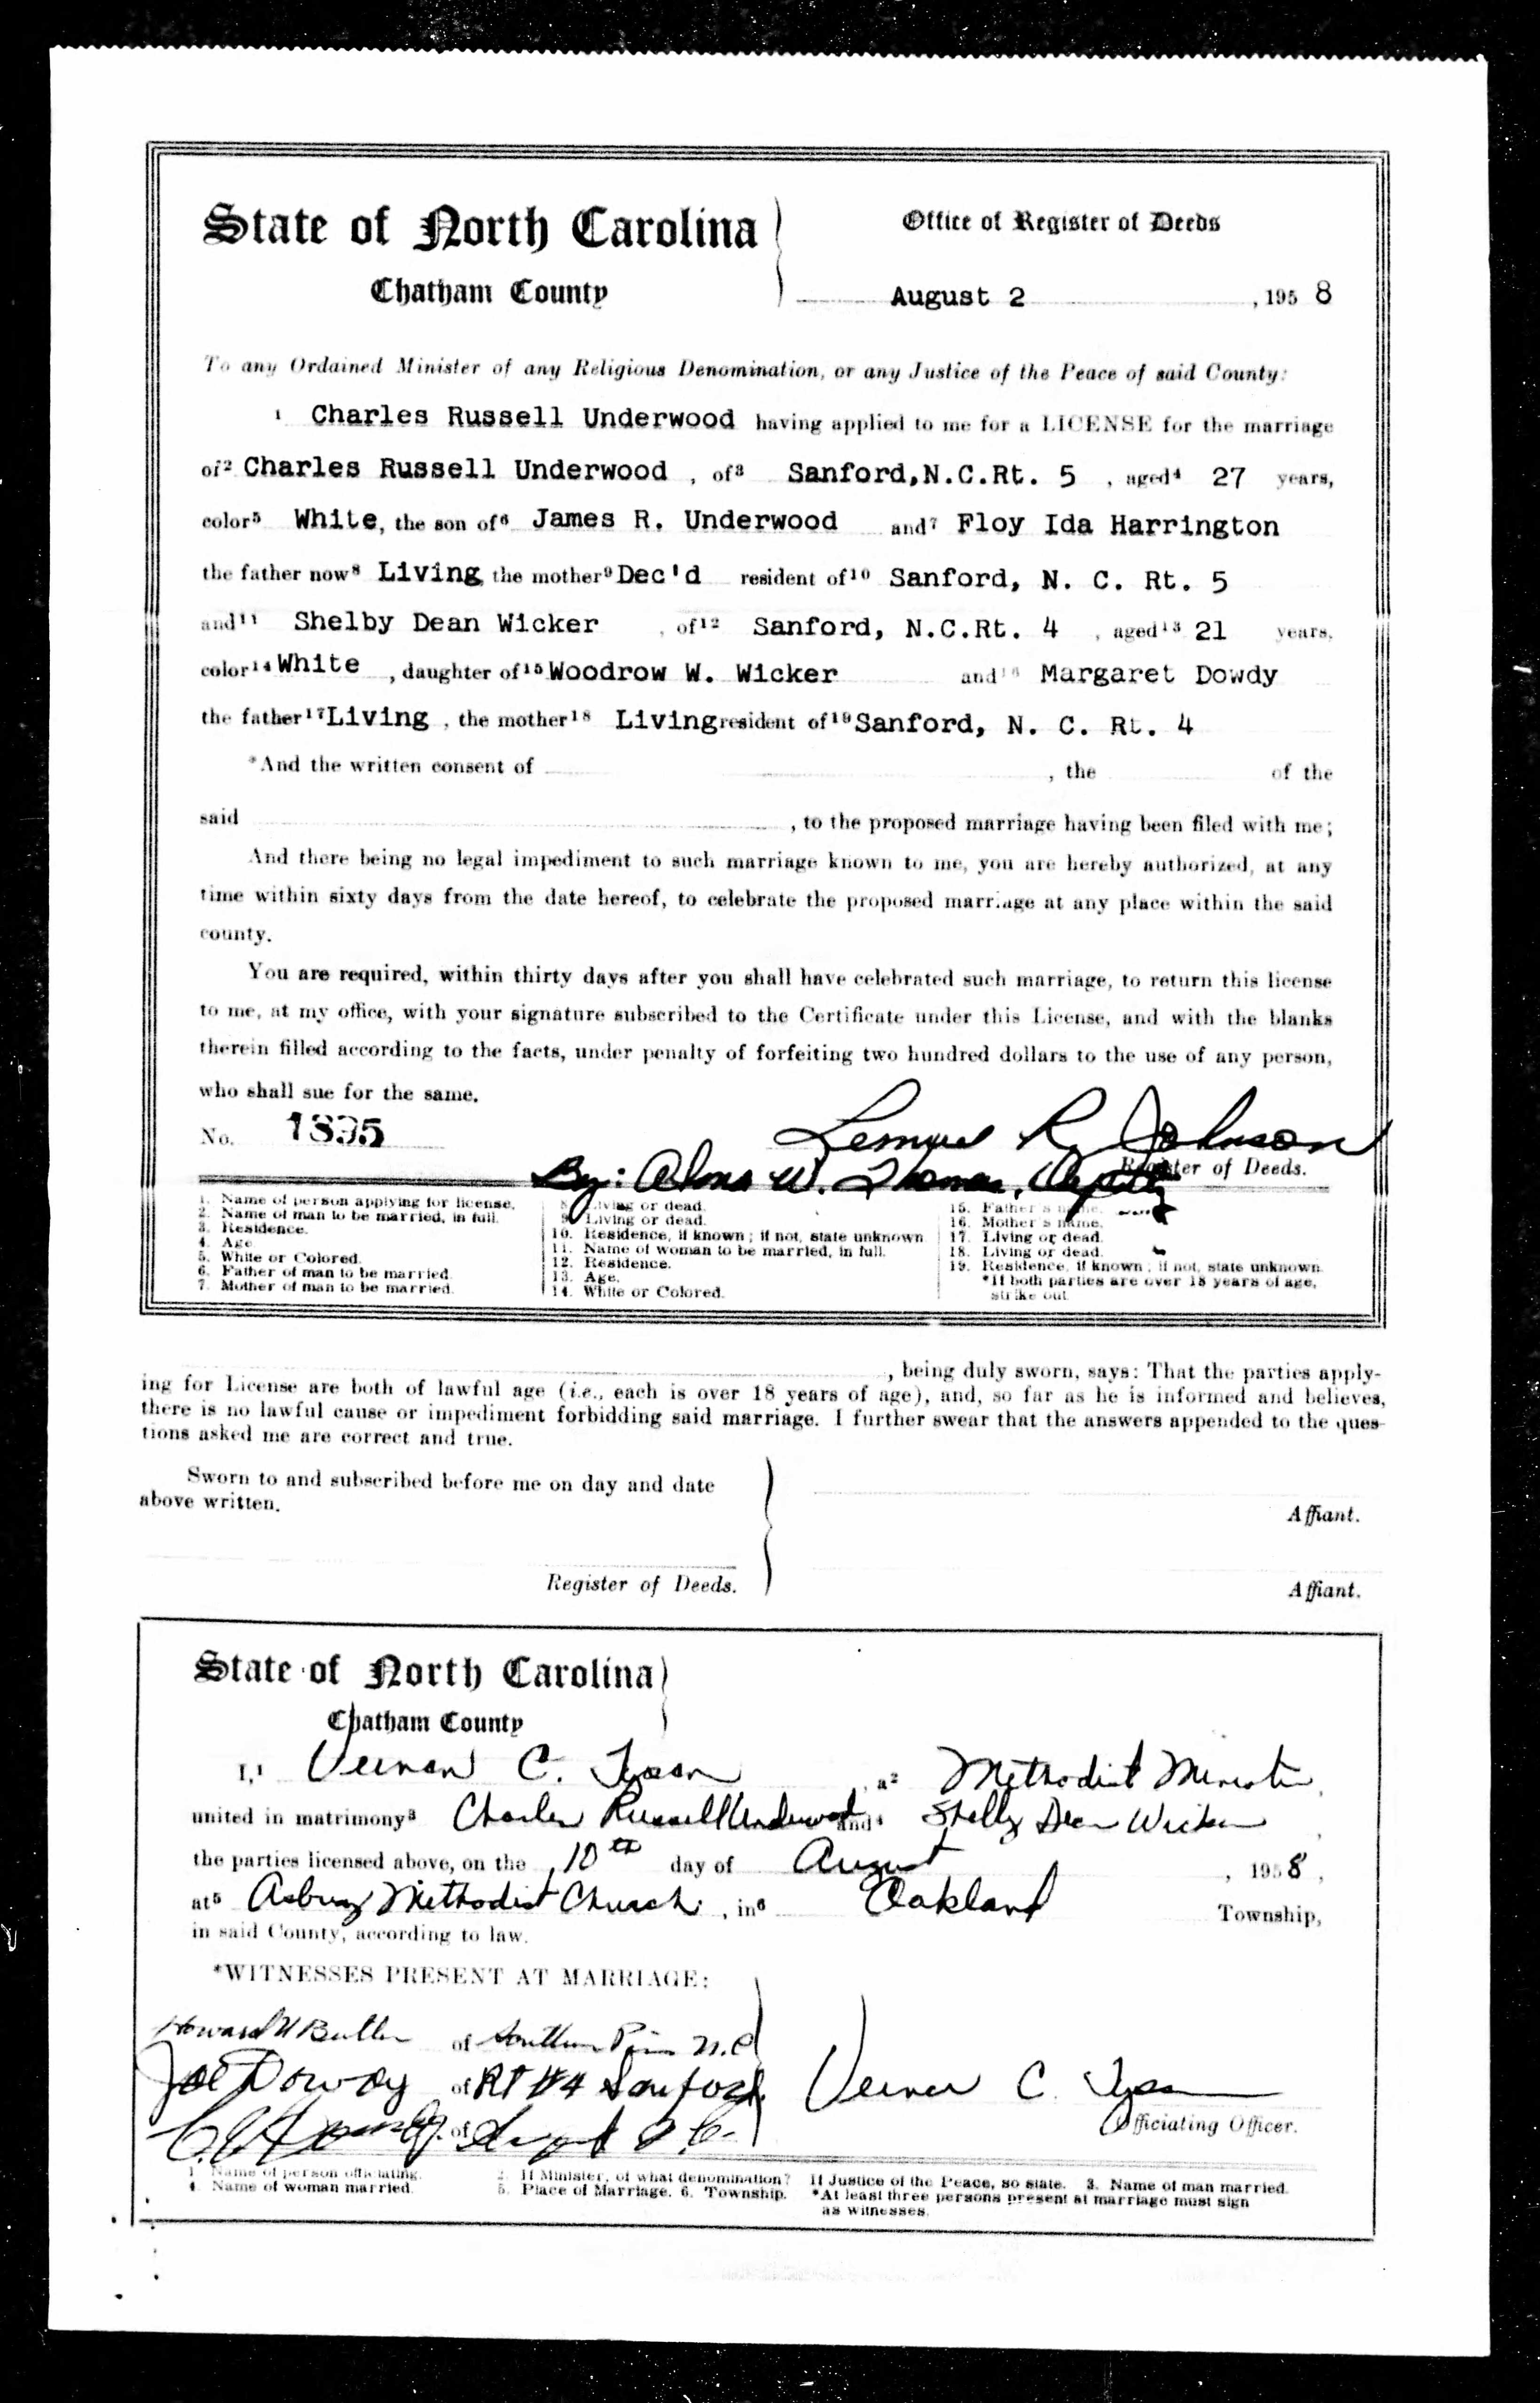 State of North Carolina
Office of Register of Deeds
Chatham County
August 2, 1958
To any Ordained Minister of any Religious Denomination, or any Justice of the Peace of said County:
1 Charles Russell Underwood having applied to me for a LICENSE for the marriage
of2 Charles Russell Underwood , of3 Sanford,N.C.Rt. 5 , aged4 27 years,
color5 White, the son of6 James R. Underwood and7 Floy Ida Harrington
the father now8 Living, the mother9 Dec'd resident of10 Sanford, N. C. Rt. 5
and11 Shelby Dean Wicker , of12 Sanford, N.C.Rt. 4 , aged13 21 years,
color14 White , daughter of15 Woodrow W. Wicker and16 Margaret Dowdy
the father17 Living , the mother18 Living resident of19 Sanford, N. C. Rt. 4
*And the written consent of , the of the
said , to the proposed marriage having been filed with me;
And there being no legal impediment to such marriage known to me, you are hereby authorized, at any
time within sixty days from the date hereof, to celebrate the proposed marriage at any place within the said
county.
You are required, within thirty days after you shall have celebrated such marriage, to return this license
to me, at my office, with your signature subscribed to the Certificate under this License, and with the blanks
therein filled according to the facts, under penalty of forfeiting two hundred dollars to the use of any person,
who shall sue for the same.
No. 1895
Lemuel R. Johnson
Register of Deeds.
By: Alma W. Thomas, Deputy
1. Name of person applying for license.
2. Name of man to be married, in full.
3. Residence.
4. Age
5. White or Colored.
6. Father of man to be married
7. Mother of man to be married.
8. Living or dead.
9. Living or dead.
10. Residence, if known; if not, state unknown
11. Name of woman to be married, in full.
12. Residence.
13. Age.
14. White or Colored.
15. Father's name.
16. Mother's name.
17. Living or dead.
18. Living or dead.
19. Residence, if known; if not, state unknown.
*If both parties are over 18 years of age,
strike out.
, being duly sworn, says: That the parties apply-
ing for License are both of lawful age (i.e., each is over 18 years of age), and, so far as he is informed and believes,
there is no lawful cause or impediment forbidding said marriage. I further swear that the answers appended to the ques-
tions asked me are correct and true.
Sworn to and subscribed before me on day and date
above written.
Affiant.
Register of Deeds.
Affiant.
State of North Carolina
Chatham County
I,1 Vernon C. Tyson , a2 Methodist Minister,
united in matrimony3 Charles Russell Underwood and4 Shelby Dean Wicker ,
the parties licensed above, on the 10th day of August , 1958,
at5 Asbury Methodist Church , in6 Oakland Township,
in said County, according to law.
*WITNESSES PRESENT AT MARRIAGE:
Howard W Butler of Southern Pines N.C
Joe Dowdy of RT #4 Sanford
of
Vernon C. Tyson
Officiating Officer.
1. Name of person officiating. 2. If Minister, of what denomination? If Justice of the Peace, so state. 3. Name of man married.
4. Name of woman married. 5. Place of Marriage. 6. Township. *At least three persons present at marriage must sign
as witnesses.